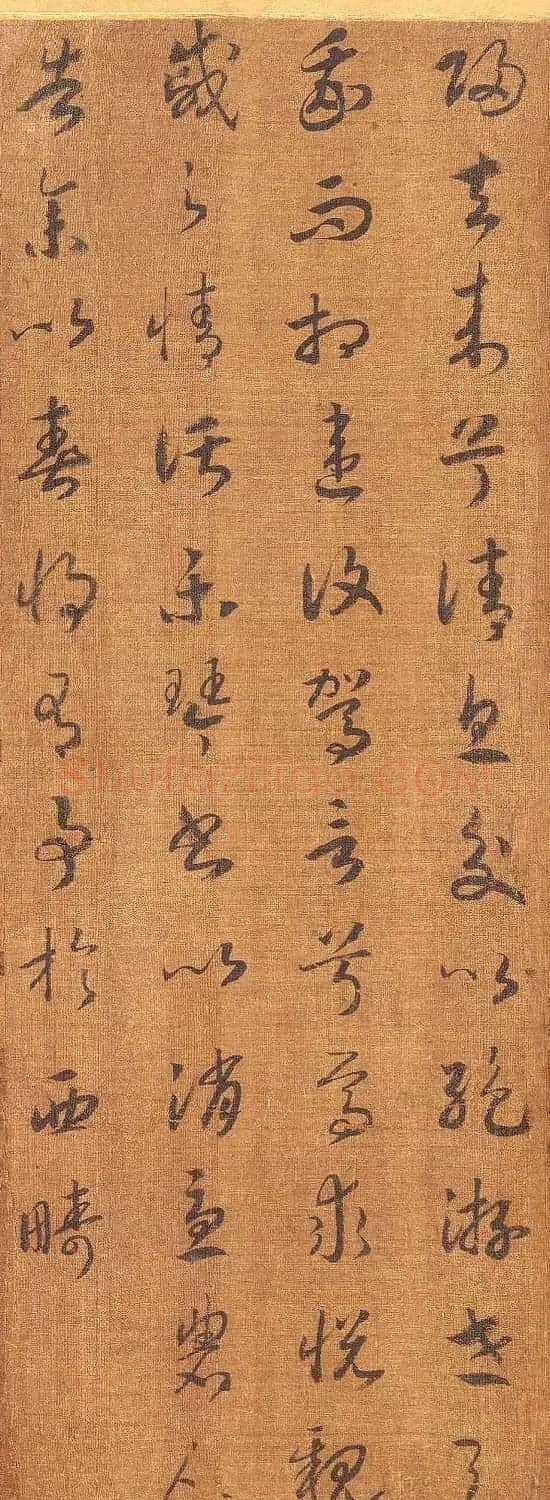 歸去來兮請息交以絕游世
我而相違復駕言兮焉求悅親
戚之情話樂琴書以消憂農人
告余以春將有事於西疇